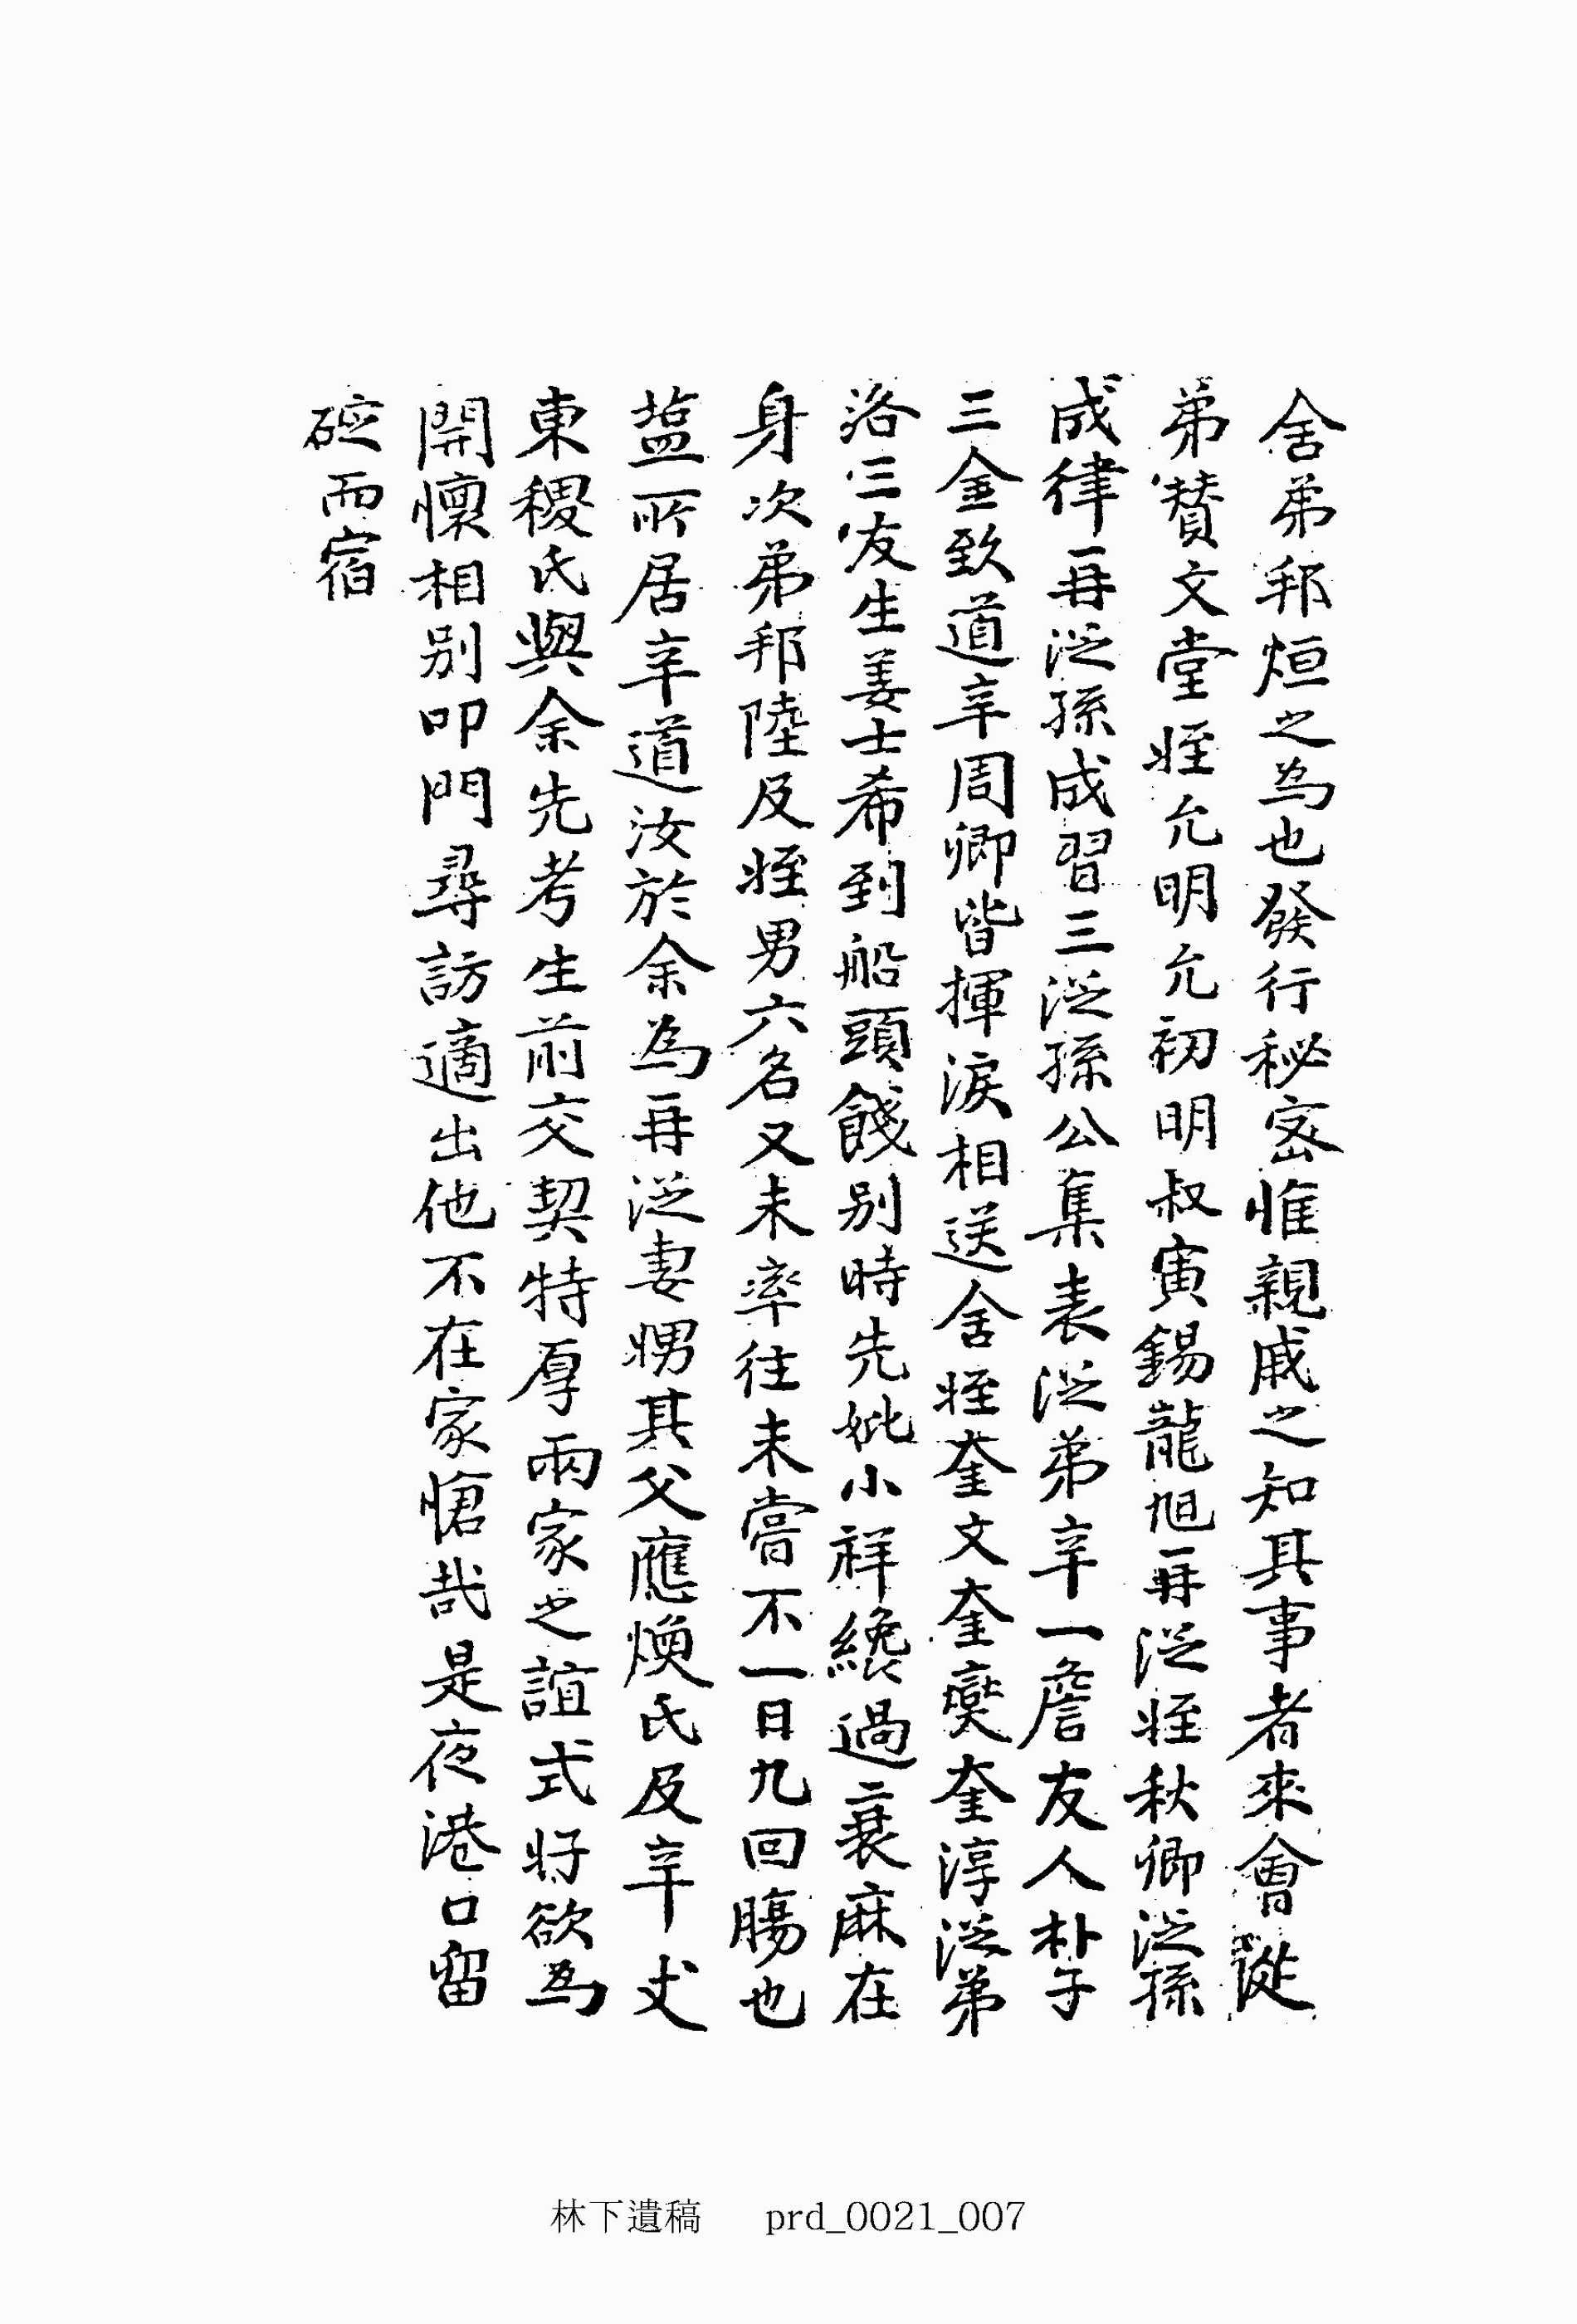 舍弟邦烜之爲也發行秘密惟親戚之知其事者來會從
弟賛文堂姪允明允初明叔寅錫龍旭再從姪秋卿從孫
成律再從孫成習三從孫公集表從弟辛一詹友人朴子
三金致道辛周卿皆揮淚相送舍姪奎文奎奭奎淳從弟
洛三友生姜士希到船頭餞別時先妣小祥纔過衰麻在
身次弟邦陸及姪男六名又未率往未嘗不一日九回膓也
盐所居辛道汝於余爲再從妻甥其父應煥氏及辛丈
東稷氏與余先考生前交契特厚兩家之誼式好欲爲
開懷相別叩門尋訪適出他不在家愴哉是夜港口留
碇而宿
林下遺稿 prd_0021_007